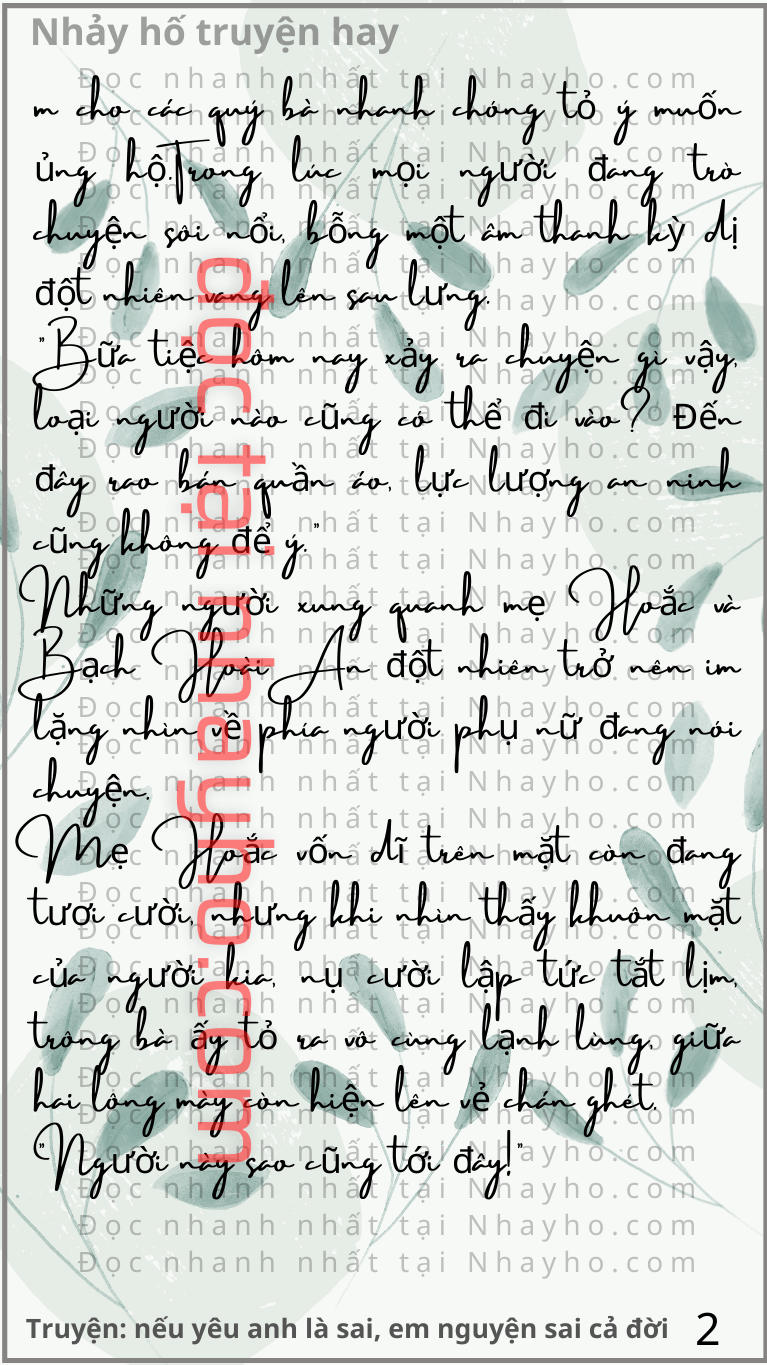 Nhảy hố truyện hay
Đọc nhanh nhất tại Nhayho.com
m cho các quý bà nhanh chóng tỏ ý muốn
ủng hộ.Trong lúc mọi người đang trò
chuyện sôi nổi, bỗng một âm thanh kỳ dị
đột nhiên vang lên sau lưng.
"Bữa tiệc hôm nay xảy ra chuyện gì vậy,
loại người nào cũng có thể đi vào? Đến
đây rao bán quần áo, lực lượng an ninh
cũng không để ý."
Những người xung quanh mẹ Hoắc và
Bạch Hoài An đột nhiên trở nên im
lặng nhìn về phía người phụ nữ đang nói
chuyện.
Mẹ Hoắc vốn dĩ trên mặt còn đang
tươi cười, nhưng khi nhìn thấy khuôn mặt
của người kia, nụ cười lập tức tắt lịm,
trông bà ấy tỏ ra vô cùng lạnh lùng, giữa
hai lông mày còn hiện lên vẻ chán ghét.
"Người này sao cũng tới đây!"
đọc tại nhayho.com
Đọc nhanh nhất tại Nhayho.com
Đọc nhanh nhất tại Nhayho.com
Truyện: nếu yêu anh là sai, em nguyện sai cả đời
2